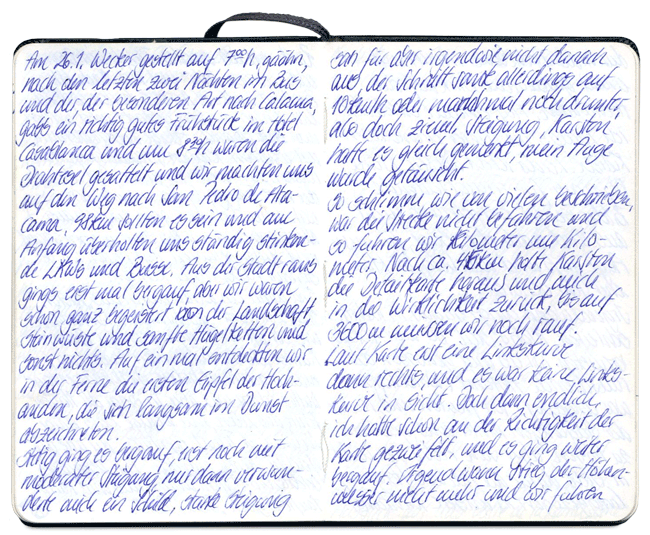 Am 26.1. Wecker gestellt auf 7ººh, gääähn,
nach den letzten zwei Nächten im Bus
und der der besonderen Art nach Calama,
gabs ein richtig gutes Frühstück im Hotel
Casablanca und um 8²⁰h waren die
Drahtesel gesattelt und wir machten uns
auf den Weg nach San Pedro de Ata-
cama, 98km sollten es sein und am
Anfang überholten uns ständig stinken-
de LKWs und Busse. Aus der Stadt raus
gings erst mal bergauf, aber wir waren
schon ganz begeistert von der Landschaft
Steinwüste und sanfte Hügelketten und
sonst nichts. Auf einmal entdeckten wir
in der Ferne die ersten Gipfel der Hoch-
anden, die sich langsam im Dunst
abzeichneten.
Stetig ging es bergauf, erst noch mit
moderater Steigung nur dann verwun-
derte mich ein Schild, starke Steigung
sah für aber irgendwie nicht danach
aus, der Schnitt sank allerdings auf
10km/h oder manchmal noch drunter,
also doch zieml. Steigung, Karsten
hatte es gleich gemerkt, mein Auge
wurde getäuscht.
So schlimm, wie von vielen beschrieben,
war die Strecke nicht befahren und
so fuhren wir Kilometer um Kilo-
meter. Nach ca. 45km holte Karsten
die Detailkarte heraus und mich
in die Wirklichkeit zurück, bis auf
3600m mussten wir noch rauf.
Laut Karte erst eine Linkskurve
dann rechts, und es war keine Links-
kurve in Sicht. Doch dann endlich,
ich hatte schon an der Richtigkeit der
Karte gezweifelt, und es ging weiter
bergauf. Irgendwann stieg der Höhen-
messer nicht mehr und wir fuhren